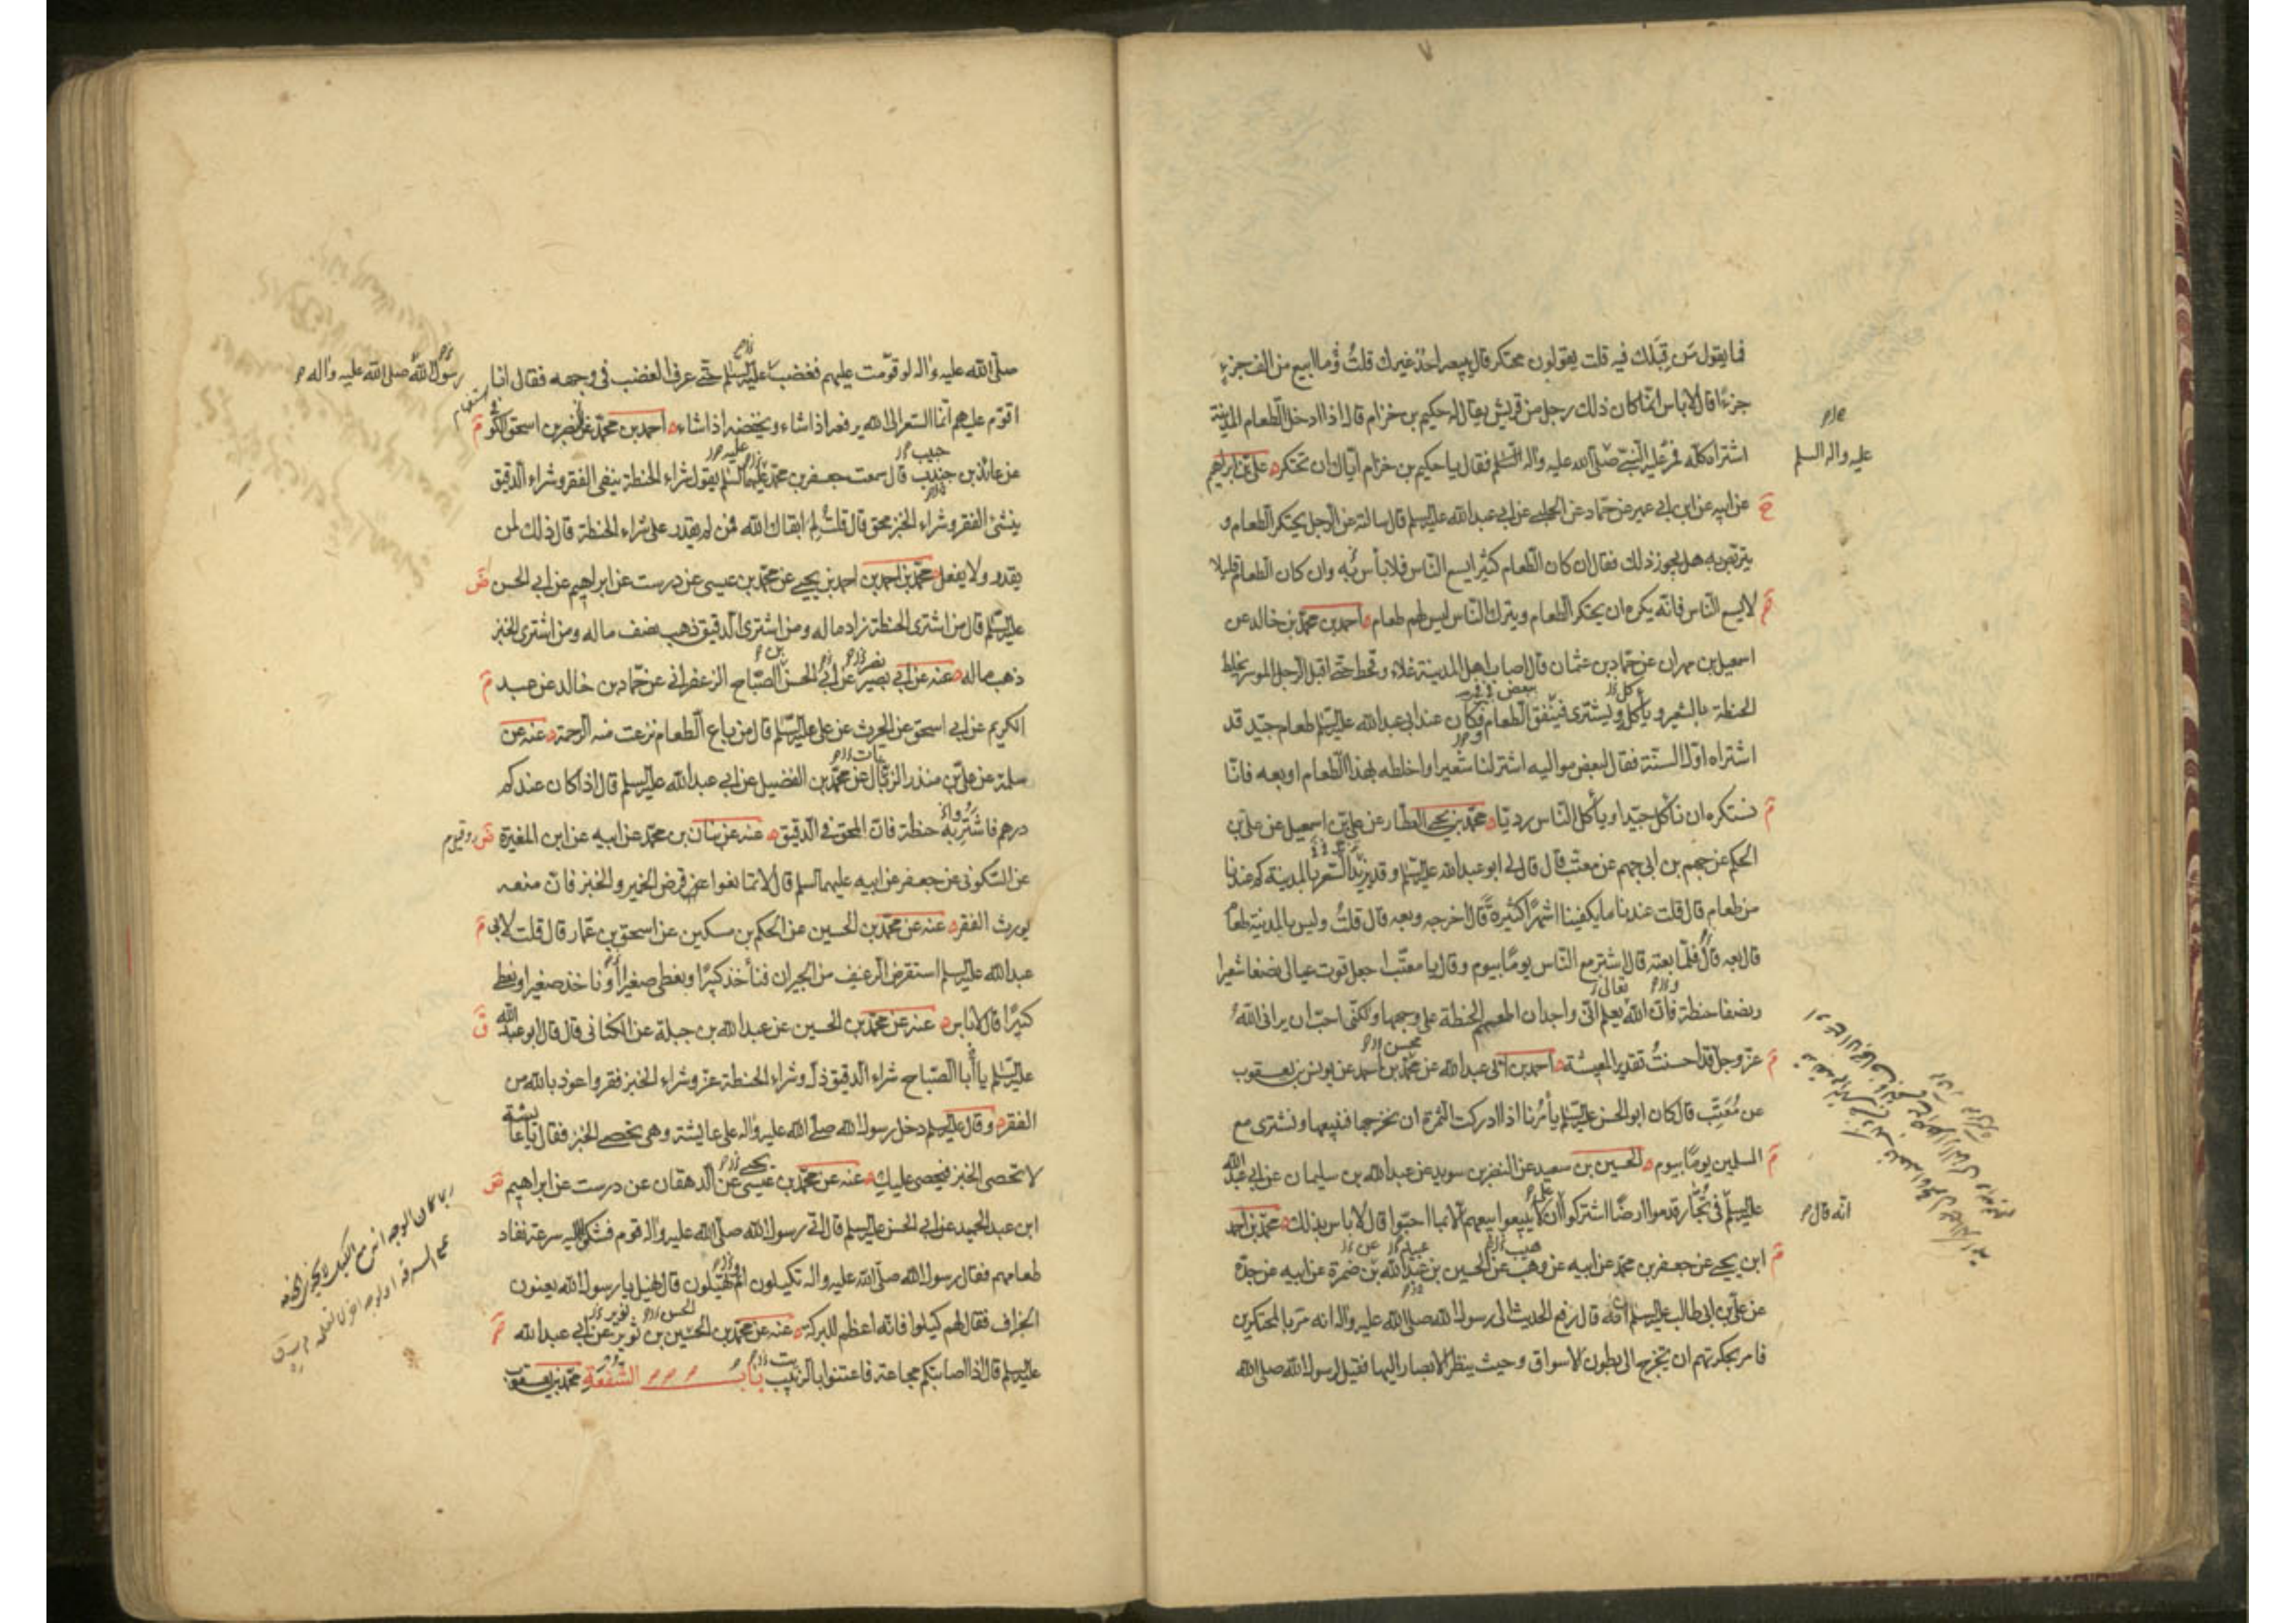 فما يقول من قبلك فيه قلت يقولون محتكر قال يبيعه احد غيرك قلت ما ابيع من الف جزء
جزءًا قال لا باس انما كان ذلك رجل من قريش يقال له حكيم بن حزام كان اذا دخل الطعام المدينة
اشتراه كله فمر عليه النبي صلى الله عليه واله السلم فقال يا حكيم بن حزام اياك ان تحتكر علي بن ابراهيم
عليه واله السلم
عن ابيه عن ابن ابي عمير عن حماد عن الحلبي عن ابي عبد الله عليه السلم قال سالته عن الرجل يحتكر الطعام و
يتربص به هل يجوز ذلك فقال ان كان الطعام كثيرا يسع الناس فلا بأس به وان كان الطعام قليلا
لا يسع الناس فانه يكره ان يحتكر الطعام ويترك الناس ليس لهم طعام احمد بن محمد بن خالد عن
اسمعيل بن مهران عن حماد بن عثمان قال اصاب اهل المدينة غلاء وقحط حتى اقبل الرجل الموسر يخلط
الحنطة بالشعير و يأكل ويشترى فينفق الطعام فكان عند ابي عبد الله عليه السلم طعام جيد قد
اشتراه اول السنة فقال لبعض مواليه اشتر لنا شعيرا واخلطه بهذا الطعام او بعه فانا
نستكره ان نأكل جيدا ويأكل الناس رديا محمد بن يحيى العطار عن علي بن اسمعيل عن علي بن
الحكم عن جهم بن ابي جهم عن معتب قال قال لي ابو عبد الله عليه السلم وقد يزيد السعر بالمدينة كم عندنا
من طعام قال قلت عندنا ما يكفينا اشهرا كثيرة قال اخرجه وبعه قال قلت وليس بالمدينة طعام
قال بعه قال فلما بعته قال اشتر مع الناس يوما بيوم وقال يا معتب اجعل قوت عيالي نصفا شعيرا
ونصفا حنطة فان الله يعلم اني واجد ان اطعمهم الحنطة على وجهها ولكني احب ان يراني الله
عز وجل قد احسنت تقدير المعيشة احمد بن ابي عبد الله عن محمد بن احمد عن يونس بن يعقوب
عن معتب قال كان ابو الحسن عليه السلم يأمرنا اذا ادركت الثمرة ان نخرجها فنبيعها ونشترى مع
المسلمين يوما بيوم الحسين بن سعيد عن النضر بن سويد عن عبد الله بن سليمان عن ابي عبد الله
عليه السلم في تجار قدموا ارضا اشتركوا ان لا يبيعوا بيعهم الا بما احبوا قال لا باس بذلك محمد بن احمد
انه قال
ابن يحيى عن جعفر بن محمد عن ابيه عن وهب عن الحسين بن عبد الله بن ضمرة عن ابيه عن جده
عن علي بن ابي طالب عليه السلم انه قال رفع الحديث الى رسول الله صلى الله عليه واله انه مر بالمحتكرين
فامر بحكرتهم ان تخرج الى بطون الاسواق وحيث ينظر الابصار اليها فقيل لرسول الله صلى الله
صلى الله عليه واله لو قومت عليهم فغضب عليه السلم حتى عرف الغضب في وجهه فقال انا
رسول الله صلى الله عليه واله
اقوم عليهم انما السعر الى الله يرفعه اذا شاء ويخفضه اذا شاء احمد بن محمد عن نضر بن اسحق الكوفي
عن عائذ بن جندب قال سمعت جعفر بن محمد عليهما السلم يقول شراء الحنطة ينفي الفقر وشراء الدقيق
ينشئ الفقر وشراء الخبز محق قال قلت له ابقاك الله فمن لم يقدر على شراء الحنطة قال ذلك لمن
يقدر ولا يفعل محمد بن احمد بن احمد بن يحيى عن محمد بن عيسى عن درست عن ابراهيم عن ابي الحسن
عليه السلم قال من اشترى الحنطة زاد ماله ومن اشترى الدقيق ذهب نصف ماله ومن اشترى الخبز
ذهب ماله عنه عن ابي بصير عن ابي الحسن الصباح الزعفراني عن حماد بن خالد عن عبد
الكريم عن ابي اسحق عن الحرث عن علي عليه السلم قال من باع الطعام نزعت منه الرحمة عنه عن
سلمة عن علي بن منذر الزبال عن محمد بن الفضيل عن ابي عبد الله عليه السلم قال اذا كان عندكم
درهم فاشتر به حنطة فان المحق في الدقيق عنه عن بنان بن محمد عن ابيه عن ابن المغيرة
عن السكوني عن جعفر عن ابيه عليهما السلم قال لا تمانعوا عن قرض الخمير والخبز فان منعه
يورث الفقر عنه عن محمد بن الحسين عن الحكم بن مسكين عن اسحق بن عمار قال قلت لابي
عبد الله عليه السلم استقرض الرغيف من الجيران فنأخذ كبيرا ونعطي صغيرا ونأخذ صغيرا ونعطي
كبيرا قال لا باس عنه عن محمد بن الحسين عن عبد الله بن جبلة عن الكناني قال قال ابو عبد الله
عليه السلم يا أبا الصباح شراء الدقيق ذل وشراء الحنطة عز وشراء الخبز فقر واعوذ بالله من
الفقر وقال عليه السلم دخل رسول الله صلى الله عليه واله على عايشة وهي تحصي الخبز فقال يا عايشة
لا تحصي الخبز فيحصى عليك عنه عن محمد بن عيسى عن الدهقان عن درست عن ابراهيم
ابن عبد الحميد عن ابي الحسن عليه السلم قال اتى رسول الله صلى الله عليه واله قوم فشكوا اليه سرعة نفاد
طعامهم فقال رسول الله صلى الله عليه واله تكيلون ام تهيلون قال نهيل يا رسول الله يعنون
الجزاف فقال لهم كيلوا فانه اعظم للبركة عنه عن محمد بن الحسين بن ثوير عن ابي عبد الله
عليه السلم قال اذا اصابتكم مجاعة فاعتنوا بالزبيب باب الشفعة محمد بن يعقوب